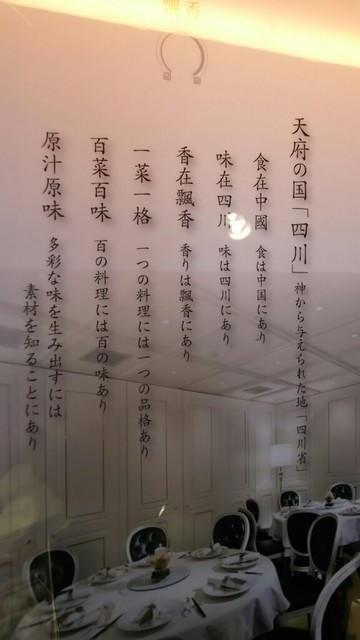 飄香
天府の国「四川」 神から与えられた地「四川省」
食在中國 食は中国にあり
味在四川 味は四川にあり
香在飄香 香りは飄香にあり
一菜一格 一つの料理には一つの品格あり
百菜百味 百の料理には百の味あり
原汁原味 多彩な味を生み出すには
素材を知ることにあり